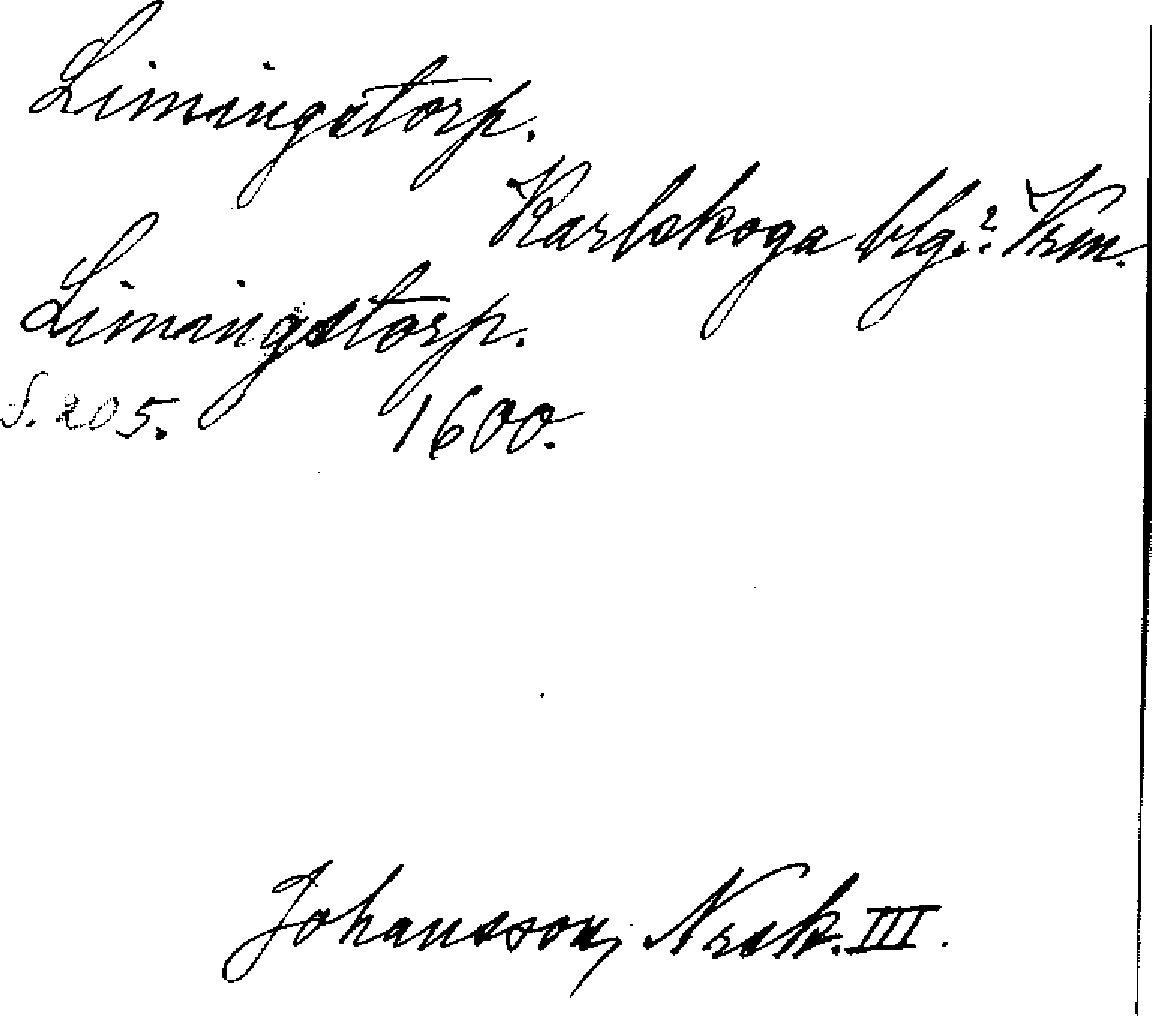 Limingstorp.
Karlskoga blg.? Vrm.
Limingstorp.
S. 205. 1600.
Johansson, Nrsk. III.